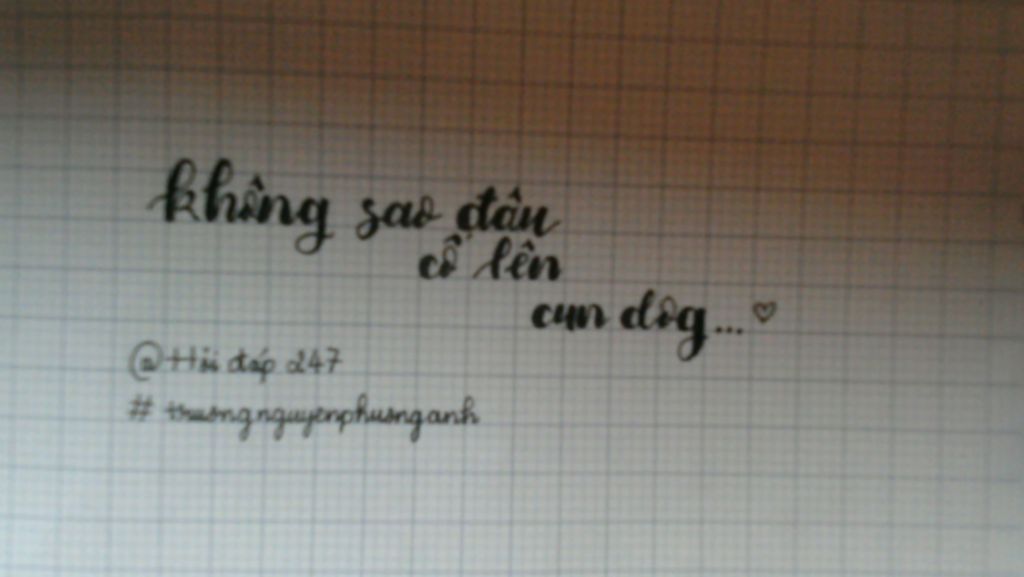 không sao đâu
cố lên
cun dôg...♡
@Hỏi đáp 247
# truongnguyenphuonganh